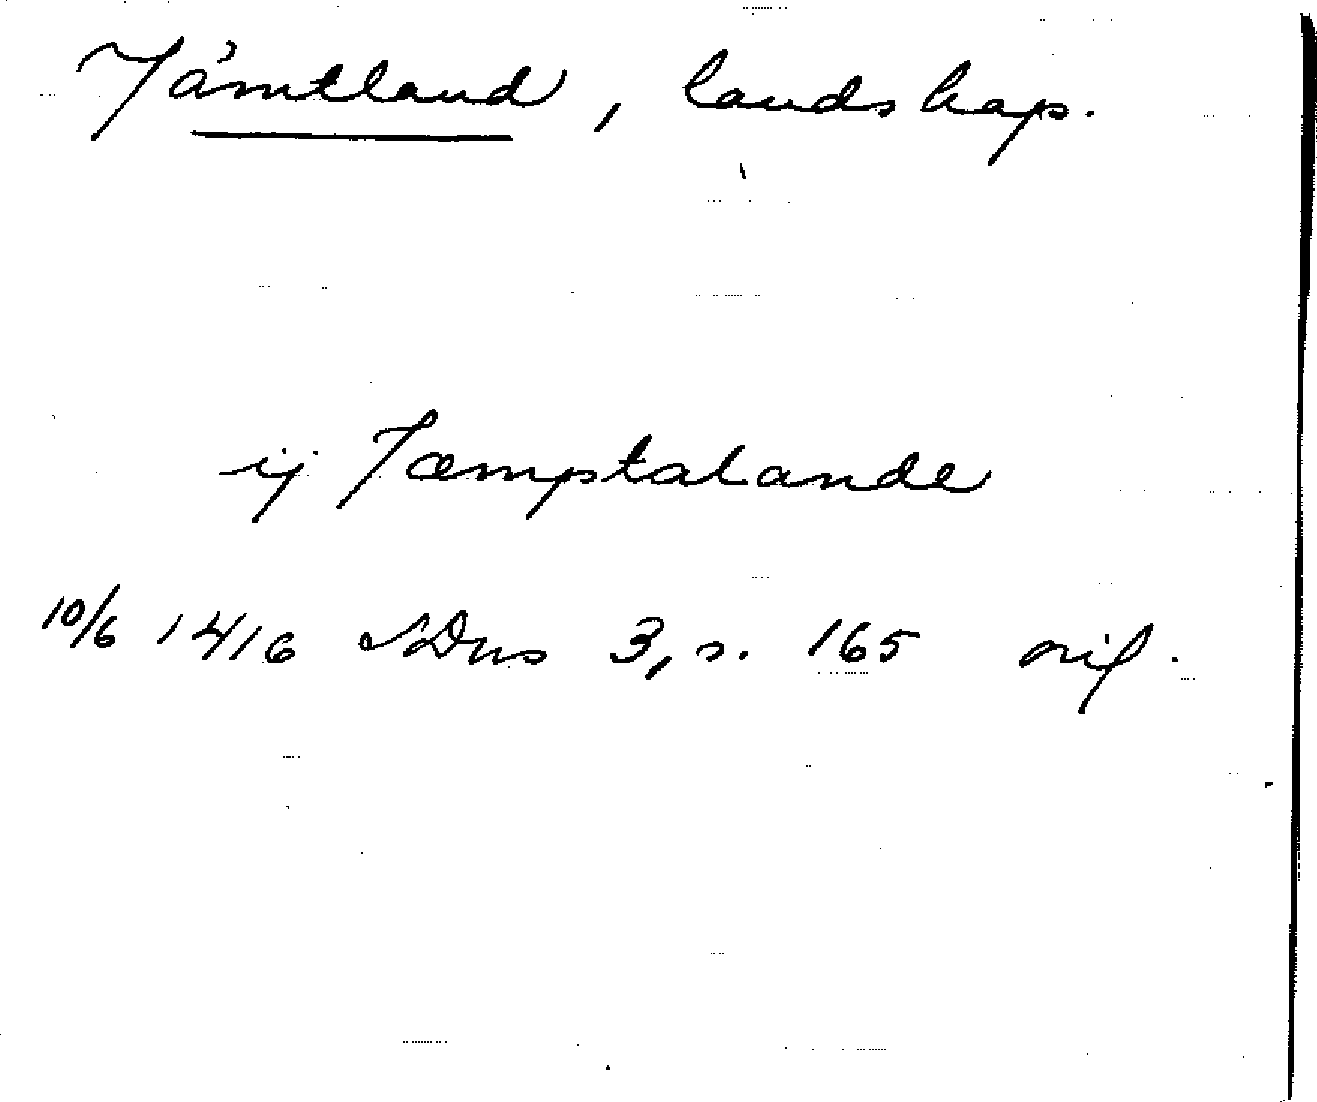 Jämtland, landskap.
ij Jæmptalande
10/6 1416 SDns 3, s. 165 orig.